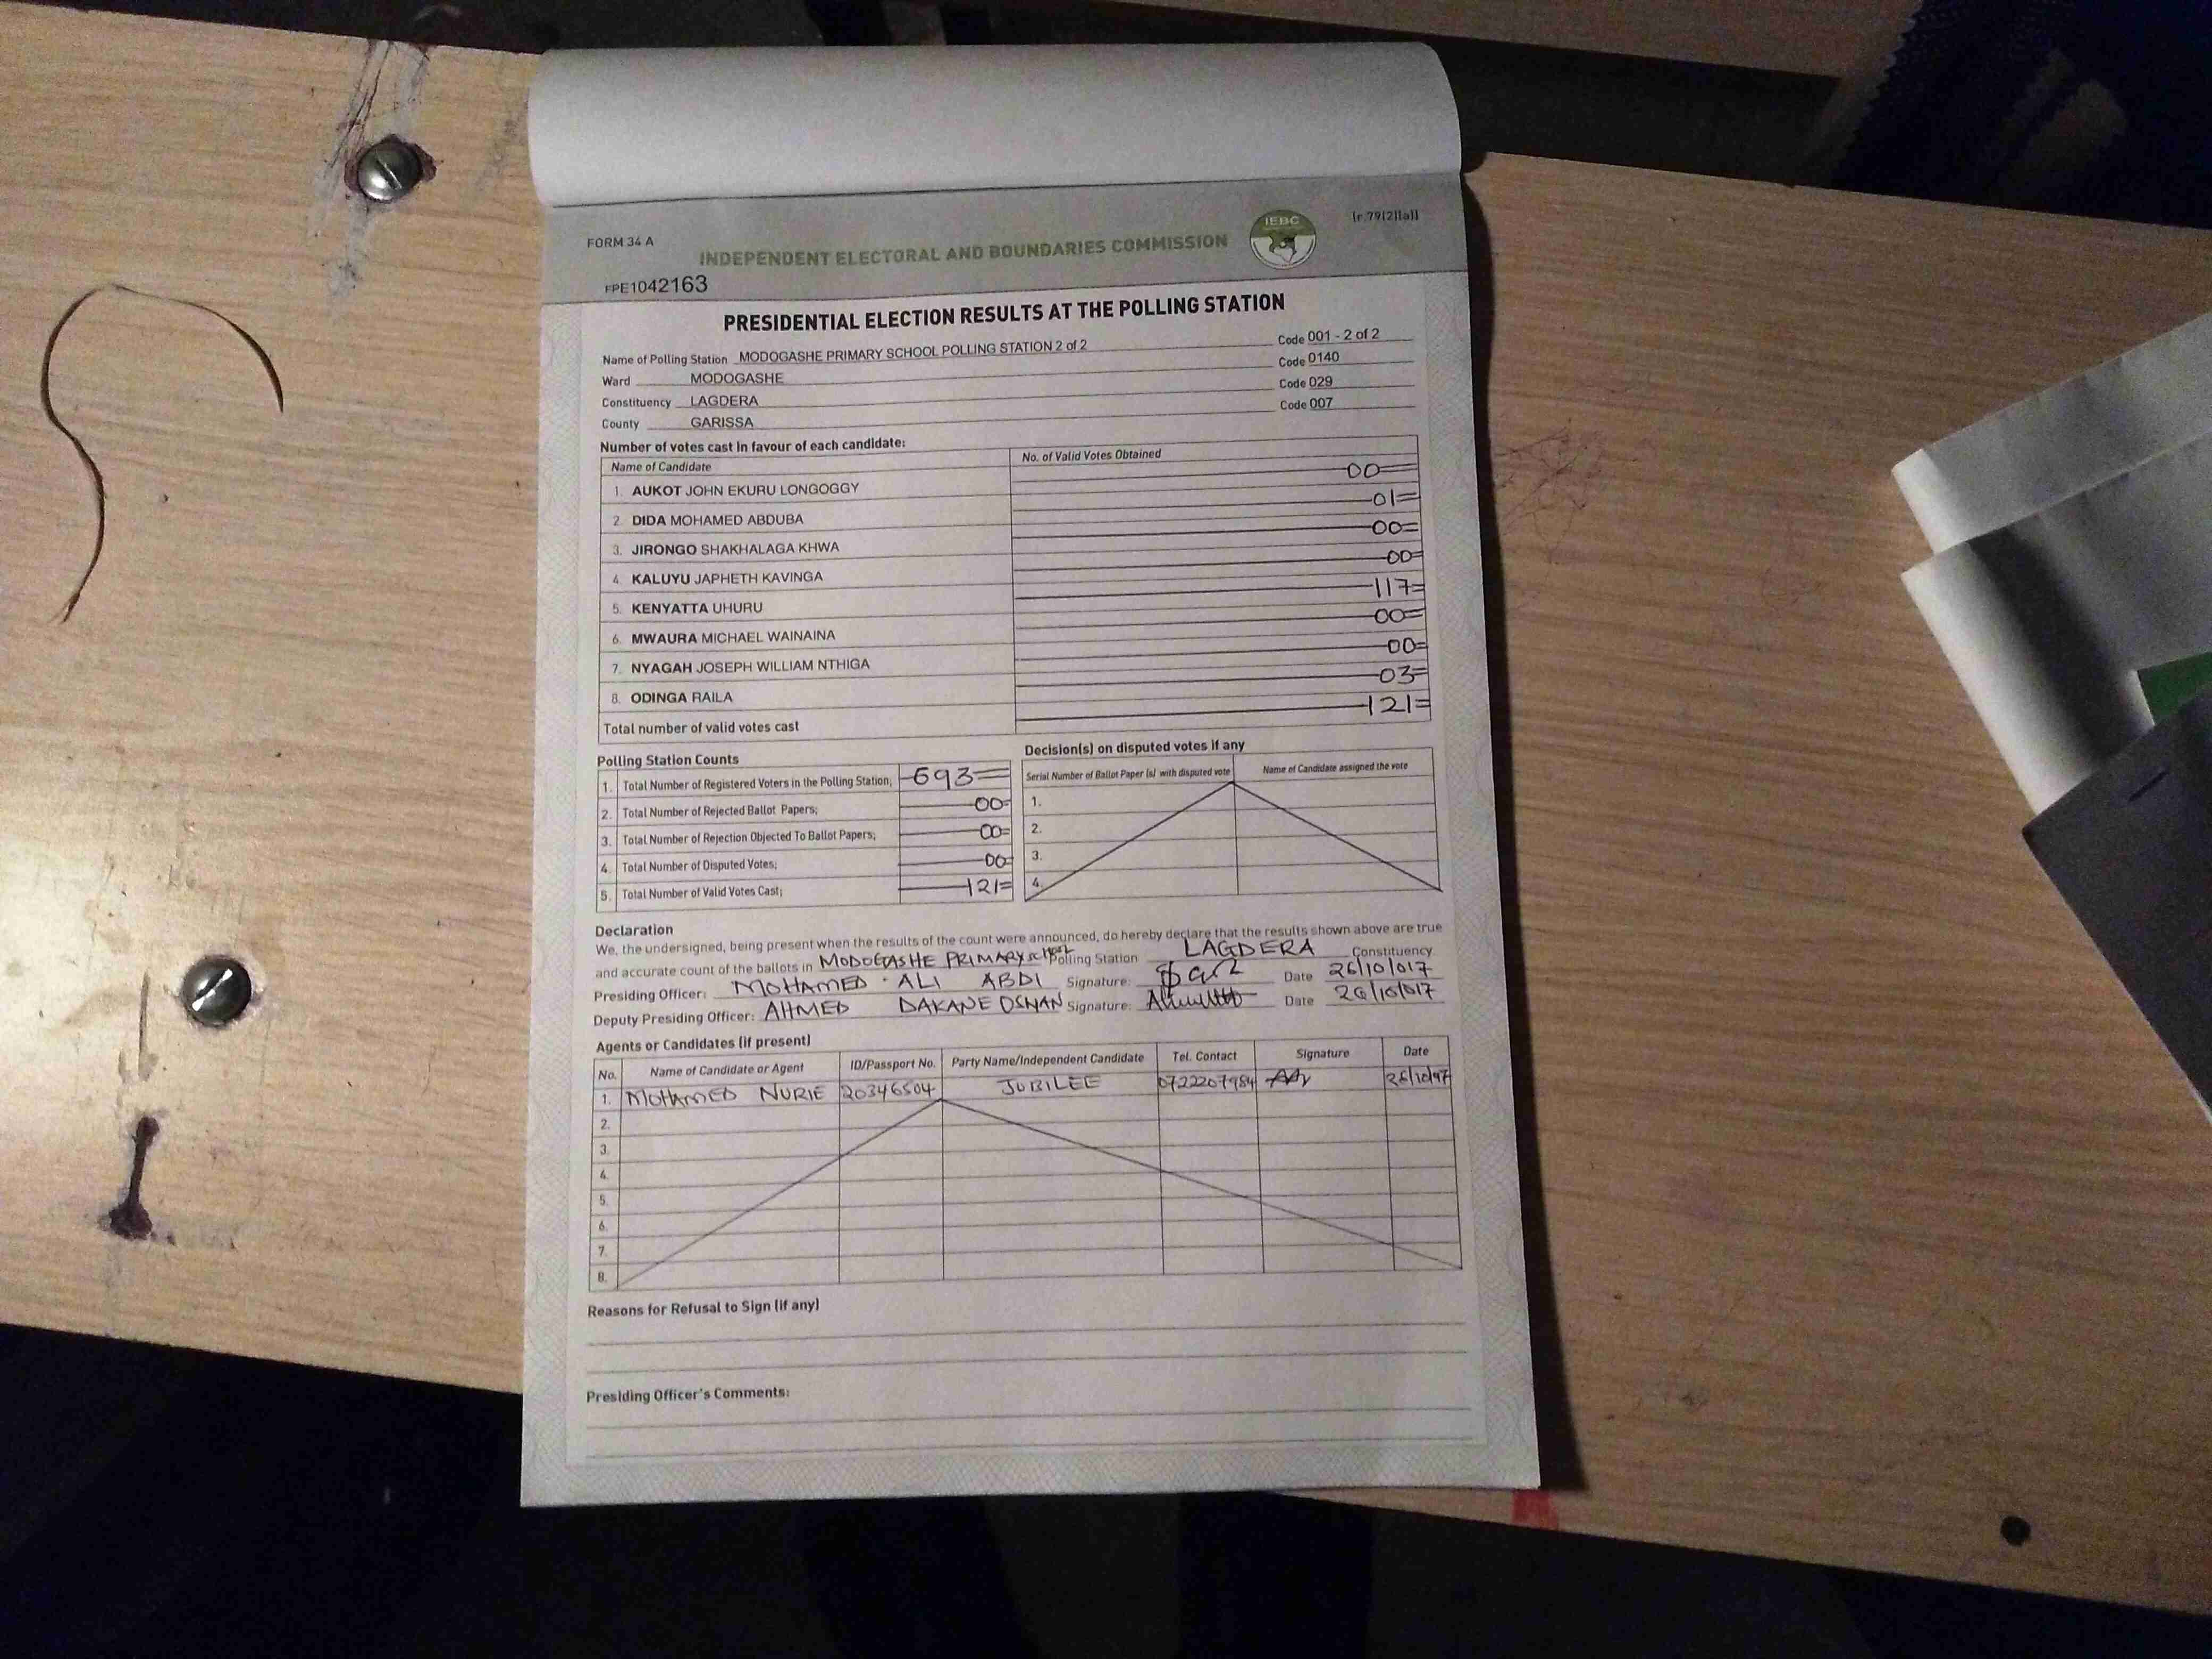 FORM 34 A
(r.79(2)(a))
IEBC
INDEPENDENT ELECTORAL AND BOUNDARIES COMMISSION
FPE1042163
PRESIDENTIAL ELECTION RESULTS AT THE POLLING STATION
Name of Polling Station MODOGASHE PRIMARY SCHOOL POLLING STATION 2 of 2 Code 001 - 2 of 2
Ward MODOGASHE Code 0140
Constituency LAGDERA Code 029
County GARISSA Code 007
Number of votes cast in favour of each candidate:
Name of Candidate No. of Valid Votes Obtained
1. AUKOT JOHN EKURU LONGOGGY 00=
2. DIDA MOHAMED ABDUBA 01=
3. JIRONGO SHAKHALAGA KHWA 00=
4. KALUYU JAPHETH KAVINGA 00=
5. KENYATTA UHURU 117=
6. MWAURA MICHAEL WAINAINA 00=
7. NYAGAH JOSEPH WILLIAM NTHIGA 00=
8. ODINGA RAILA 03=
Total number of valid votes cast 121=
Polling Station Counts
1. Total Number of Registered Voters in the Polling Station; 693=
2. Total Number of Rejected Ballot Papers; 00=
3. Total Number of Rejection Objected To Ballot Papers; 00=
4. Total Number of Disputed Votes; 00=
5. Total Number of Valid Votes Cast; 121=
Decision(s) on disputed votes if any
Serial Number of Ballot Paper (s) with disputed vote Name of Candidate assigned the vote
1.
2.
3.
4.
Declaration
We, the undersigned, being present when the results of the count were announced, do hereby declare that the results shown above are true
and accurate count of the ballots in MODOGASHE PRIMARY Polling Station LAGDERA Constituency
Presiding Officer: MOHAMED ALI ABDI Signature: Date 26/10/017
Deputy Presiding Officer: AHMED DAKANE OSMAN Signature: Date 26/10/017
Agents or Candidates (if present)
No. Name of Candidate or Agent ID/Passport No. Party Name/Independent Candidate Tel. Contact Signature Date
1. MOHAMED NURIE 20346504 JUBILEE 0722207984
2.
3.
4.
5.
6.
7.
8.
Reasons for Refusal to Sign (if any)
Presiding Officer's Comments: